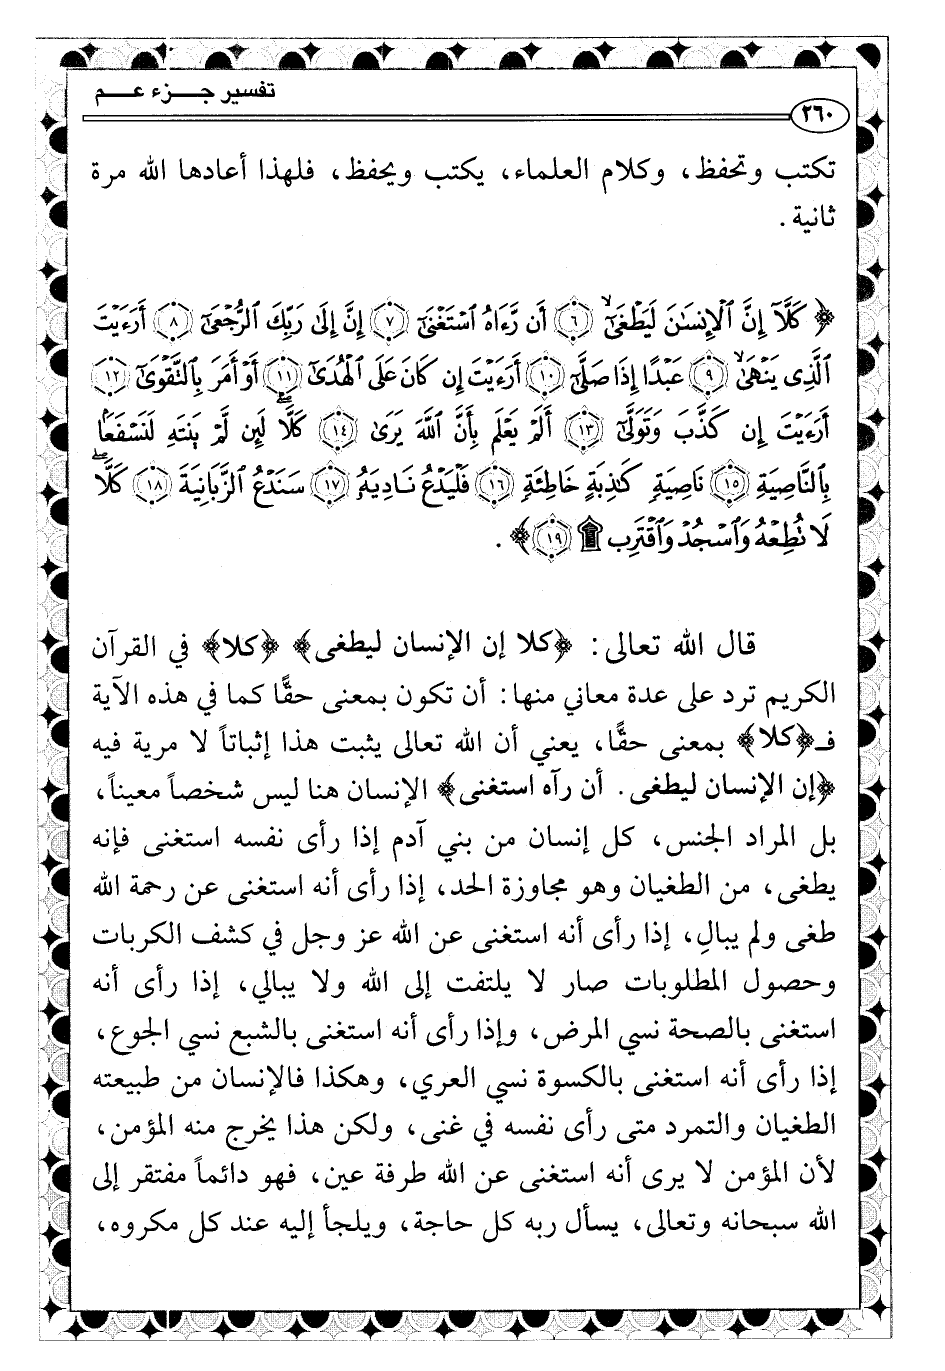 تفسير جـــزء عـــم
٢٦٠
تكتب وتحفظ، وكلام العلماء، يكتب ويحفظ، فلهذا أعادها الله مرة
ثانية.
﴿كَلَّآ إِنَّ ٱلْإِنسَٰنَ لَيَطْغَىٰٓ ۙ ٦ أَن رَّءَاهُ ٱسْتَغْنَىٰٓ ٧ إِنَّ إِلَىٰ رَبِّكَ ٱلرُّجْعَىٰٓ ٨ أَرَءَيْتَ
ٱلَّذِى يَنْهَىٰ ۙ ٩ عَبْدًا إِذَا صَلَّىٰٓ ١٠ أَرَءَيْتَ إِن كَانَ عَلَى ٱلْهُدَىٰٓ ١١ أَوْ أَمَرَ بِٱلتَّقْوَىٰٓ ١٢
أَرَءَيْتَ إِن كَذَّبَ وَتَوَلَّىٰٓ ١٣ أَلَمْ يَعْلَم بِأَنَّ ٱللَّهَ يَرَىٰ ١٤ كَلَّا لَئِن لَّمْ يَنتَهِ لَنَسْفَعَۢا
بِٱلنَّاصِيَةِ ١٥ نَاصِيَةٍ كَٰذِبَةٍ خَاطِئَةٍ ١٦ فَلْيَدْعُ نَادِيَهُۥ ١٧ سَنَدْعُ ٱلزَّبَانِيَةَ ١٨ كَلَّا
لَا تُطِعْهُ وَٱسْجُدْ وَٱقْتَرِب ۩ ١٩﴾.
قال الله تعالى: ﴿كلا إن الإنسان ليطغى﴾ ﴿كلا﴾ في القرآن
الكريم ترد على عدة معاني منها: أن تكون بمعنى حقًّا كما في هذه الآية
فـ﴿كلا﴾ بمعنى حقًّا، يعني أن الله تعالى يثبت هذا إثباتاً لا مرية فيه
﴿إن الإنسان ليطغى. أن رآه استغنى﴾ الإنسان هنا ليس شخصاً معيناً،
بل المراد الجنس، كل إنسان من بني آدم إذا رأى نفسه استغنى فإنه
يطغى، من الطغيان وهو مجاوزة الحد، إذا رأى أنه استغنى عن رحمة الله
طغى ولم يبالِ، إذا رأى أنه استغنى عن الله عز وجل في كشف الكربات
وحصول المطلوبات صار لا يلتفت إلى الله ولا يبالي، إذا رأى أنه
استغنى بالصحة نسي المرض، وإذا رأى أنه استغنى بالشبع نسي الجوع،
إذا رأى أنه استغنى بالكسوة نسي العري، وهكذا فالإنسان من طبيعته
الطغيان والتمرد متى رأى نفسه في غنى، ولكن هذا يخرج منه المؤمن،
لأن المؤمن لا يرى أنه استغنى عن الله طرفة عين، فهو دائماً مفتقر إلى
الله سبحانه وتعالى، يسأل ربه كل حاجة، ويلجأ إليه عند كل مكروه،